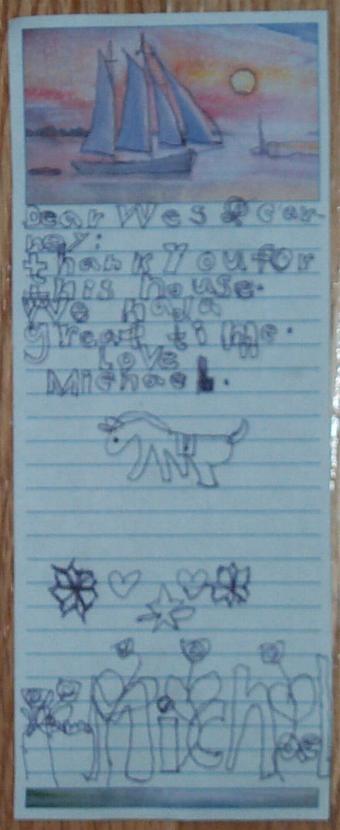 Dear Wes & Car-
ney:
thank you for
this house.
We had a
great time.
Love
Michael.
Michael